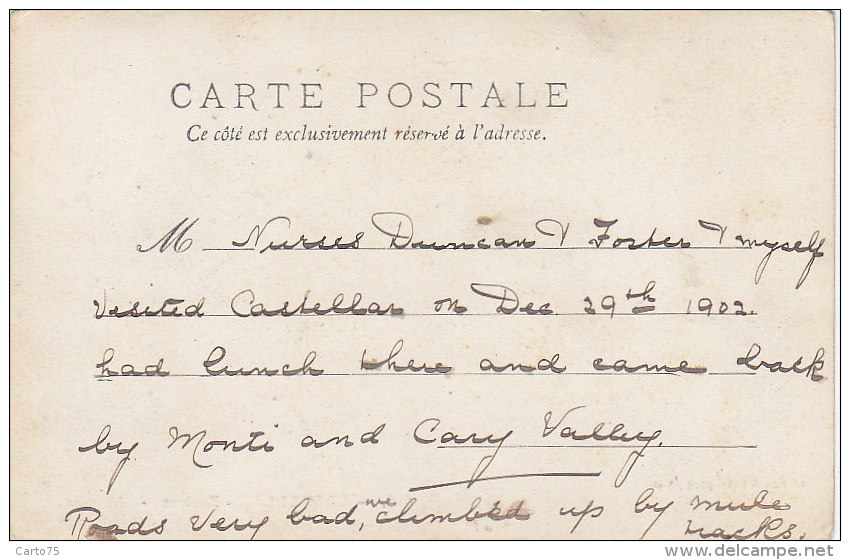 CARTE POSTALE
Ce côté est exclusivement réservé à l'adresse.
M Nurses Duncan & Forter & myself
visited Castellar on Dec 29th 1902.
had lunch there and came back
by Monti and Cary Valley.
Roads very bad, we climbed up by mule
tracks.
Carto75
www.delcampe.net